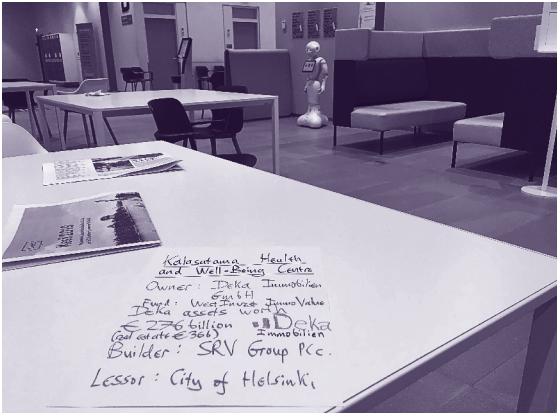 Kalasatama Health
and Well-Being Centre
Owner: Deka Immobilien
GmbH
Fund: WestInvest ImmoValue
Deka assets worth
€ 276 billion
(real estate € 36b)
Deka
Immobilien
Builder: SRV Group Plc.
Lessor: City of Helsinki